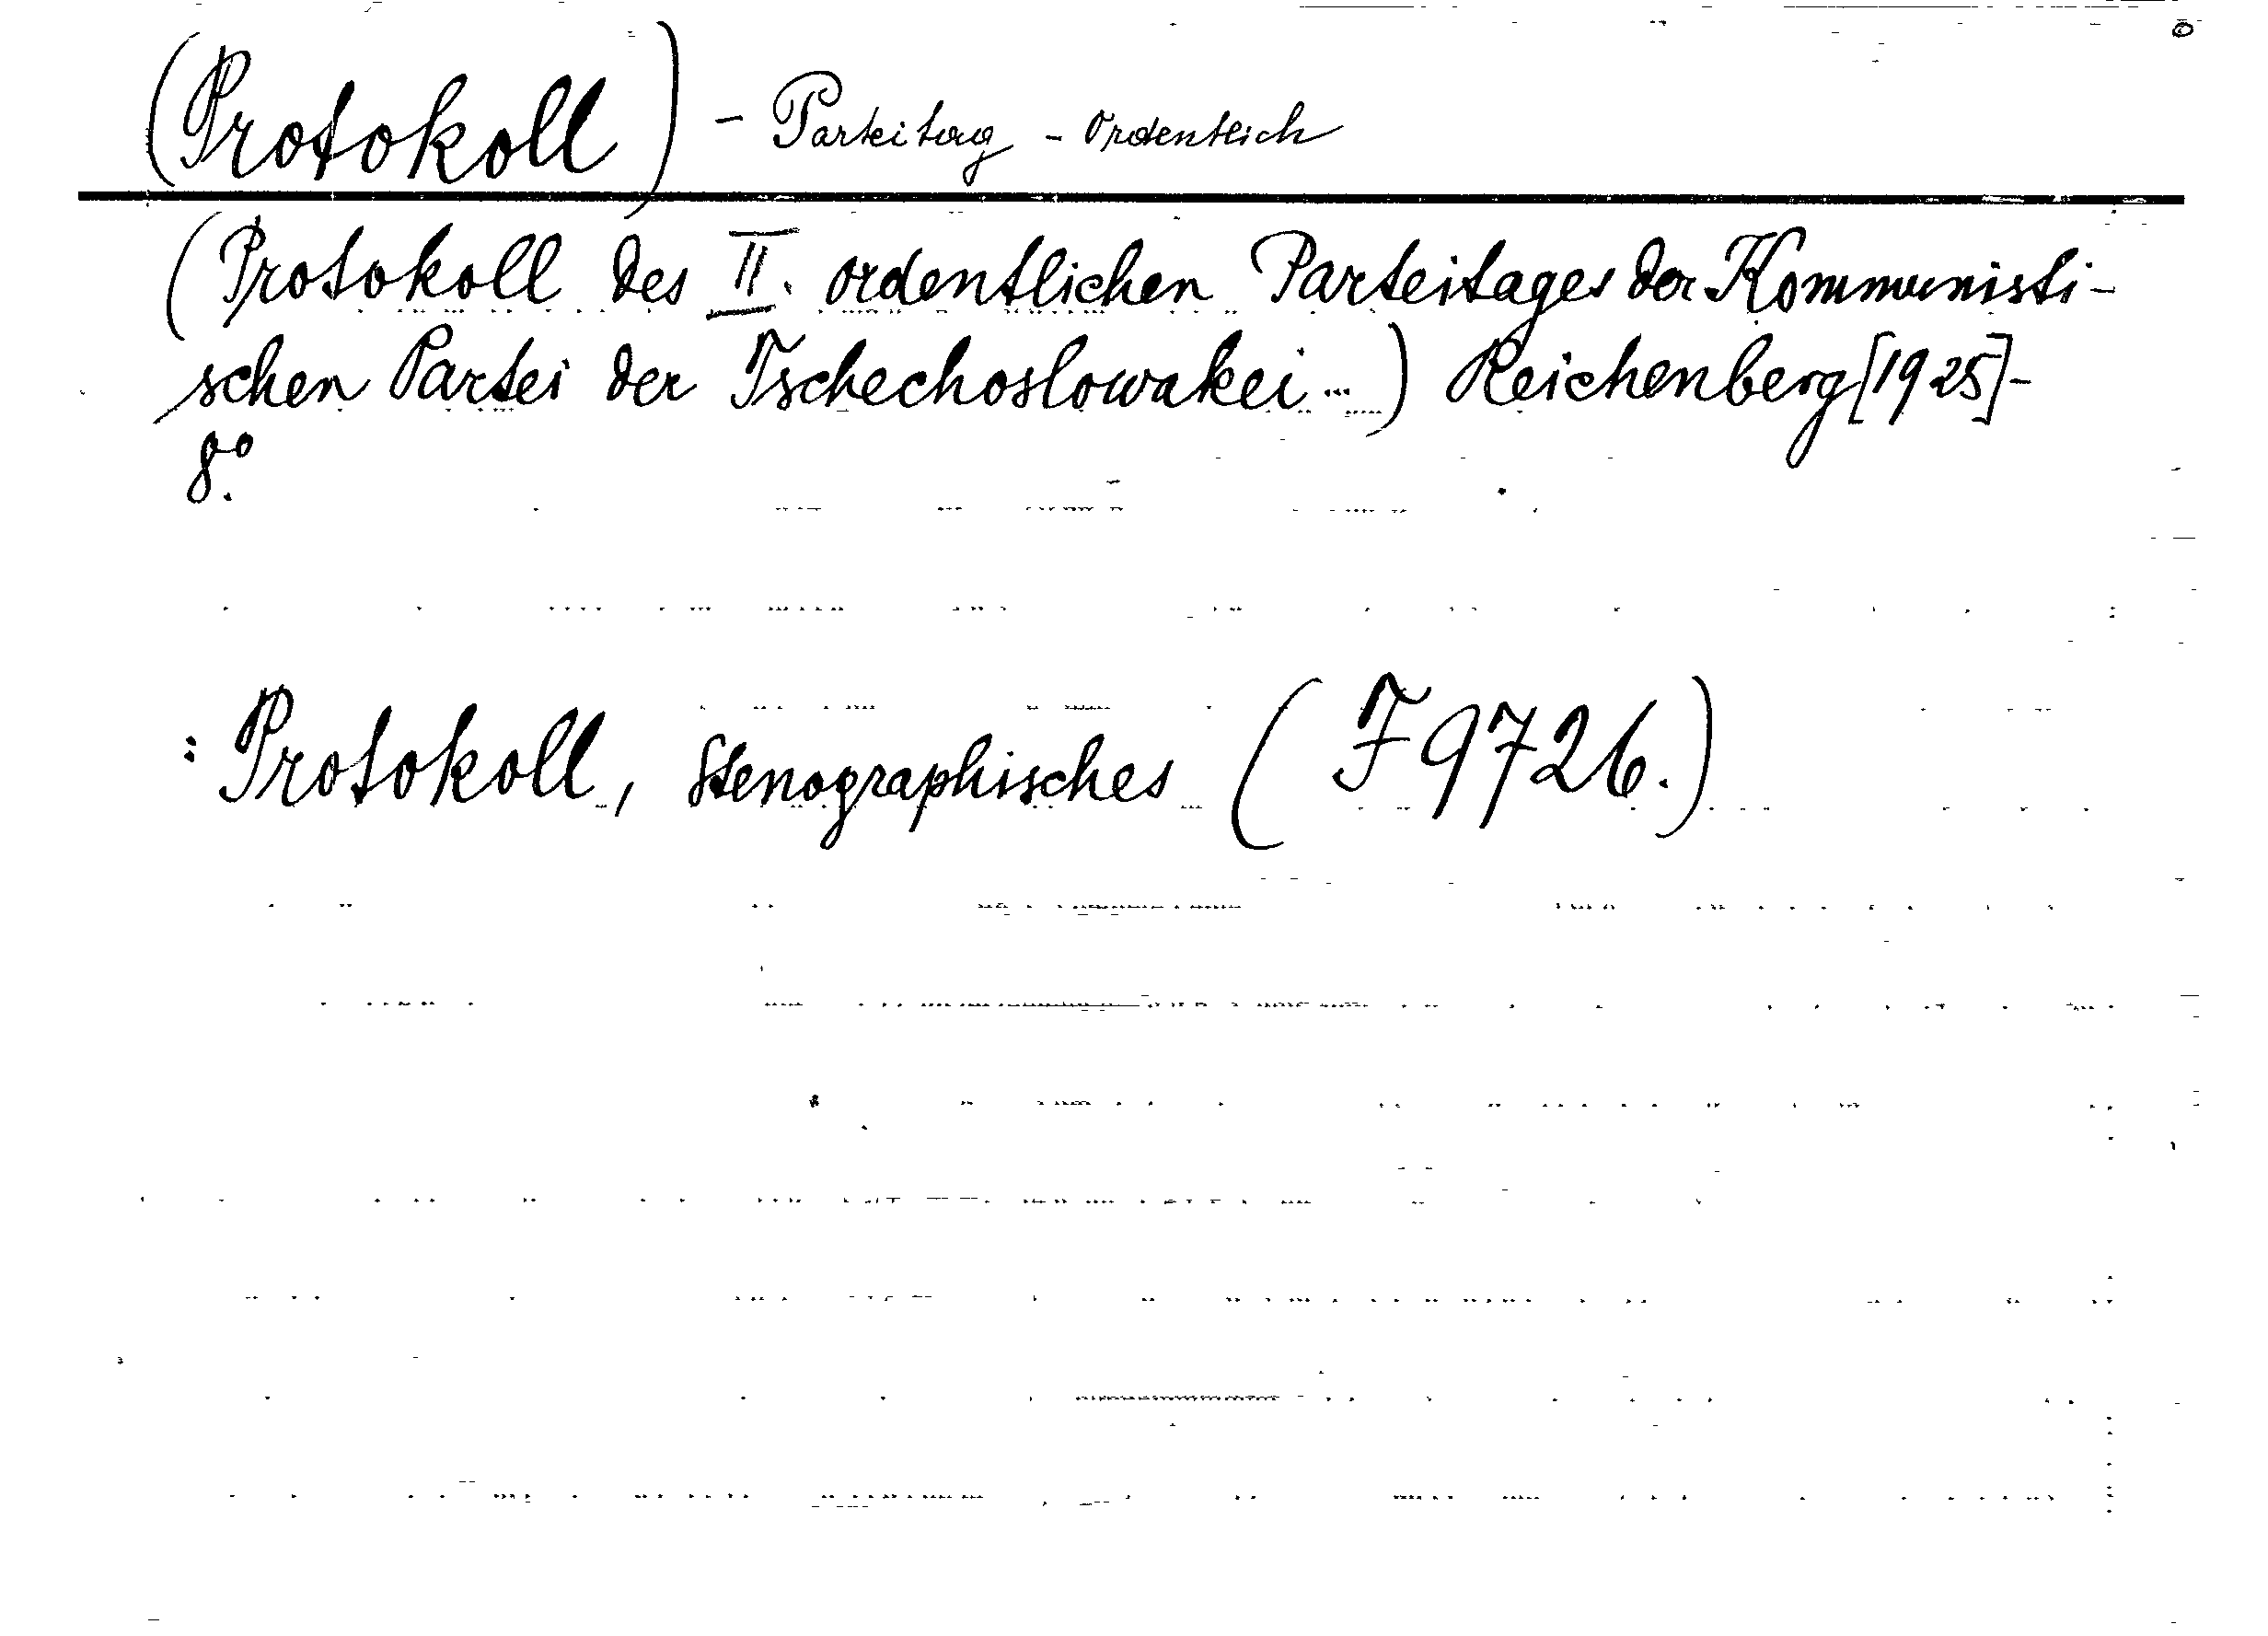 (Protokoll) - Parteitag - Ordentlich
(Protokoll des II. ordentlichen Parteitages der Kommunisti-
schen Partei der Tschechoslowakei...) Reichenberg [1925]-
8°.
: Protokoll, Stenographisches (F 9726.)